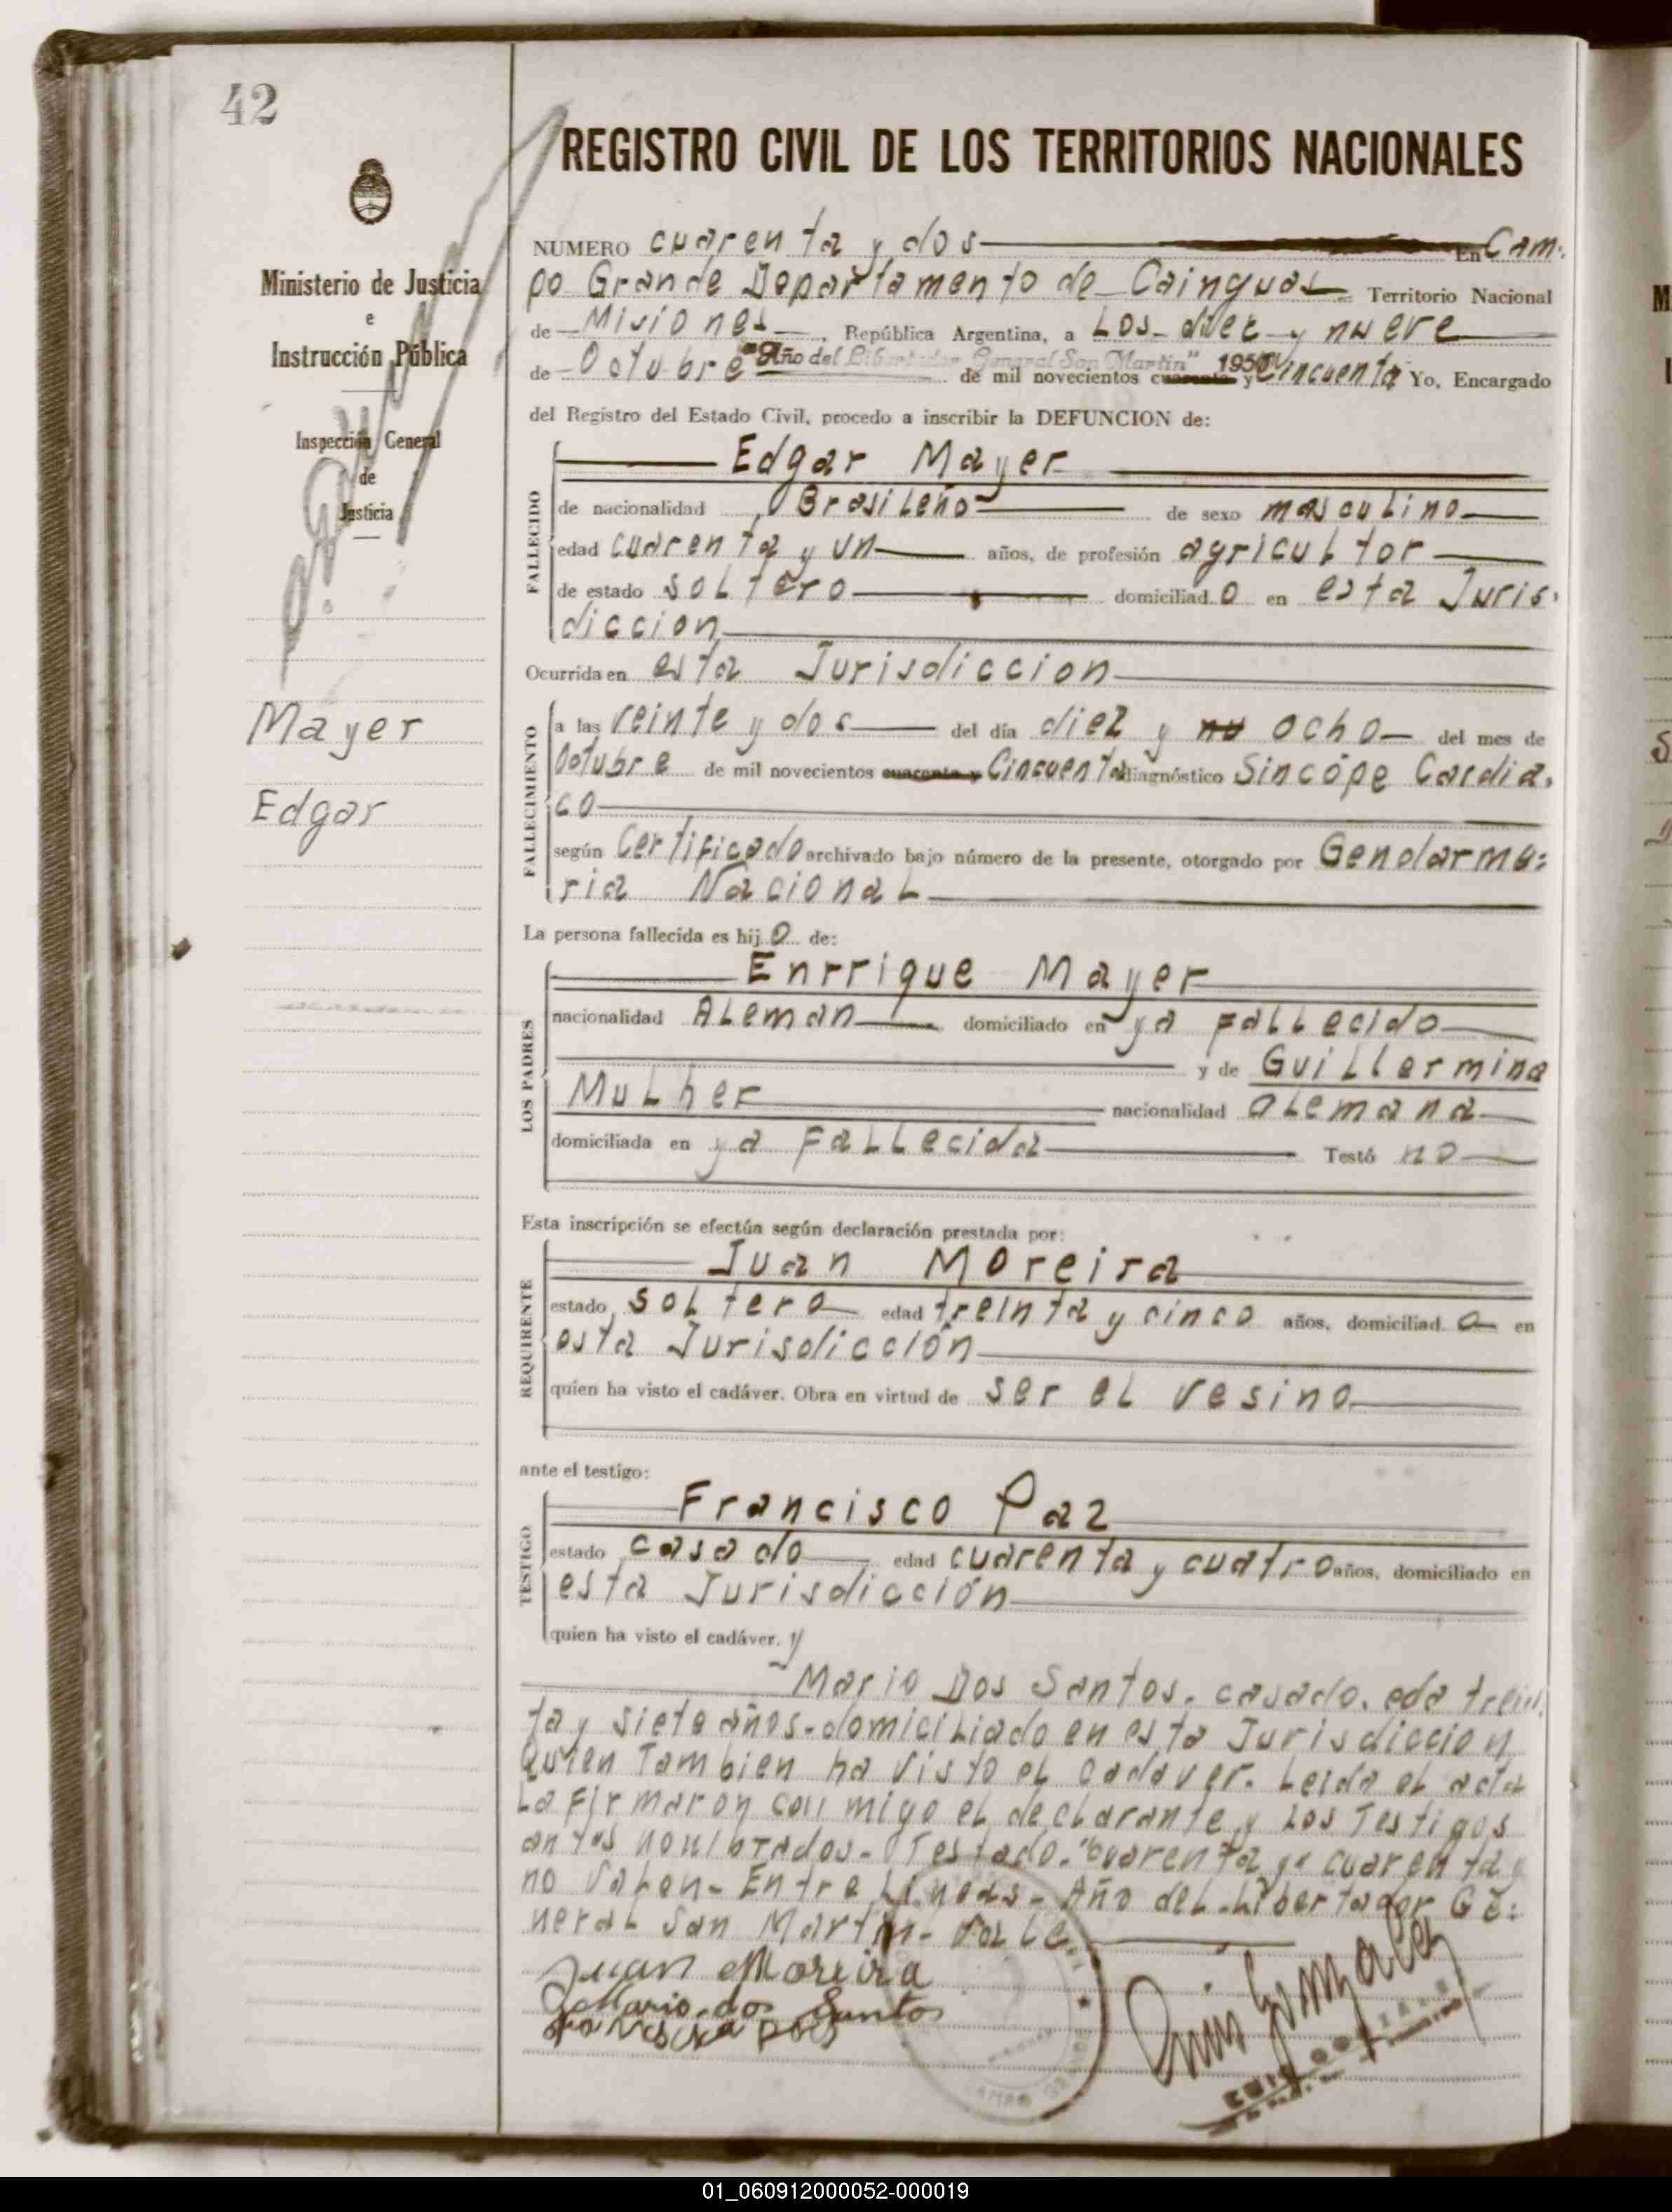 42
REGISTRO CIVIL DE LOS TERRITORIOS NACIONALES
Ministerio de Justicia
e
Instrucción Pública
Inspección General
de
Justicia
Mayer
Edgar
NUMERO cuarenta y dos En Cam-
po Grande Departamento de Cainguas Territorio Nacional
de Misiones, República Argentina, a Los diez y nueve
"Año del Libertador General San Martín" 1950
de Octubre de mil novecientos cuarenta y Cincuenta Yo, Encargado
del Registro del Estado Civil, procedo a inscribir la DEFUNCION de:
FALLECIDO
Edgar Mayer
de nacionalidad Brasileño de sexo masculino
edad cuarenta y un años, de profesión agricultor
de estado soltero domiciliado en esta Juris-
diccion
Ocurrida en esta Jurisdiccion
FALLECIMIENTO
a las veinte y dos del día diez y nu ocho del mes de
Octubre de mil novecientos cuarenta y Cincuenta diagnóstico Sincópe Cardia-
co
según Certificado archivado bajo número de la presente, otorgado por Gendarme-
ria Nacional
La persona fallecida es hijo de:
LOS PADRES
Enrrique Mayer
nacionalidad Aleman domiciliado en ya fallecido
y de Guillermina
Mulher nacionalidad alemana
domiciliada en ya fallecida Testó no
Esta inscripción se efectúa según declaración prestada por:
REQUIRENTE
Juan Moreira
estado soltero edad treinta y cinco años, domiciliado en
esta Jurisdicción
quien ha visto el cadáver. Obra en virtud de ser el vesino
ante el testigo:
TESTIGO
Francisco Paz
estado casado edad cuarenta y cuatro años, domiciliado en
esta Jurisdicción
quien ha visto el cadáver. y
Mario Dos Santos. casado. eda trein-
ta y siete años-domiciliado en esta Jurisdiccion
Quien Tambien ha visto el cadaver. Leida el acta
La firmaron con migo el declarante y Los Testigos
antes nombrados- Testado. "cuarenta y" cuarenta y
no Valen- Entre Lineas- Año del Libertador Ge-
neral San Martin- Vale.
Juan Moreira
Mario dos Santos
CAMPO GRANDE
01_060912000052-000019